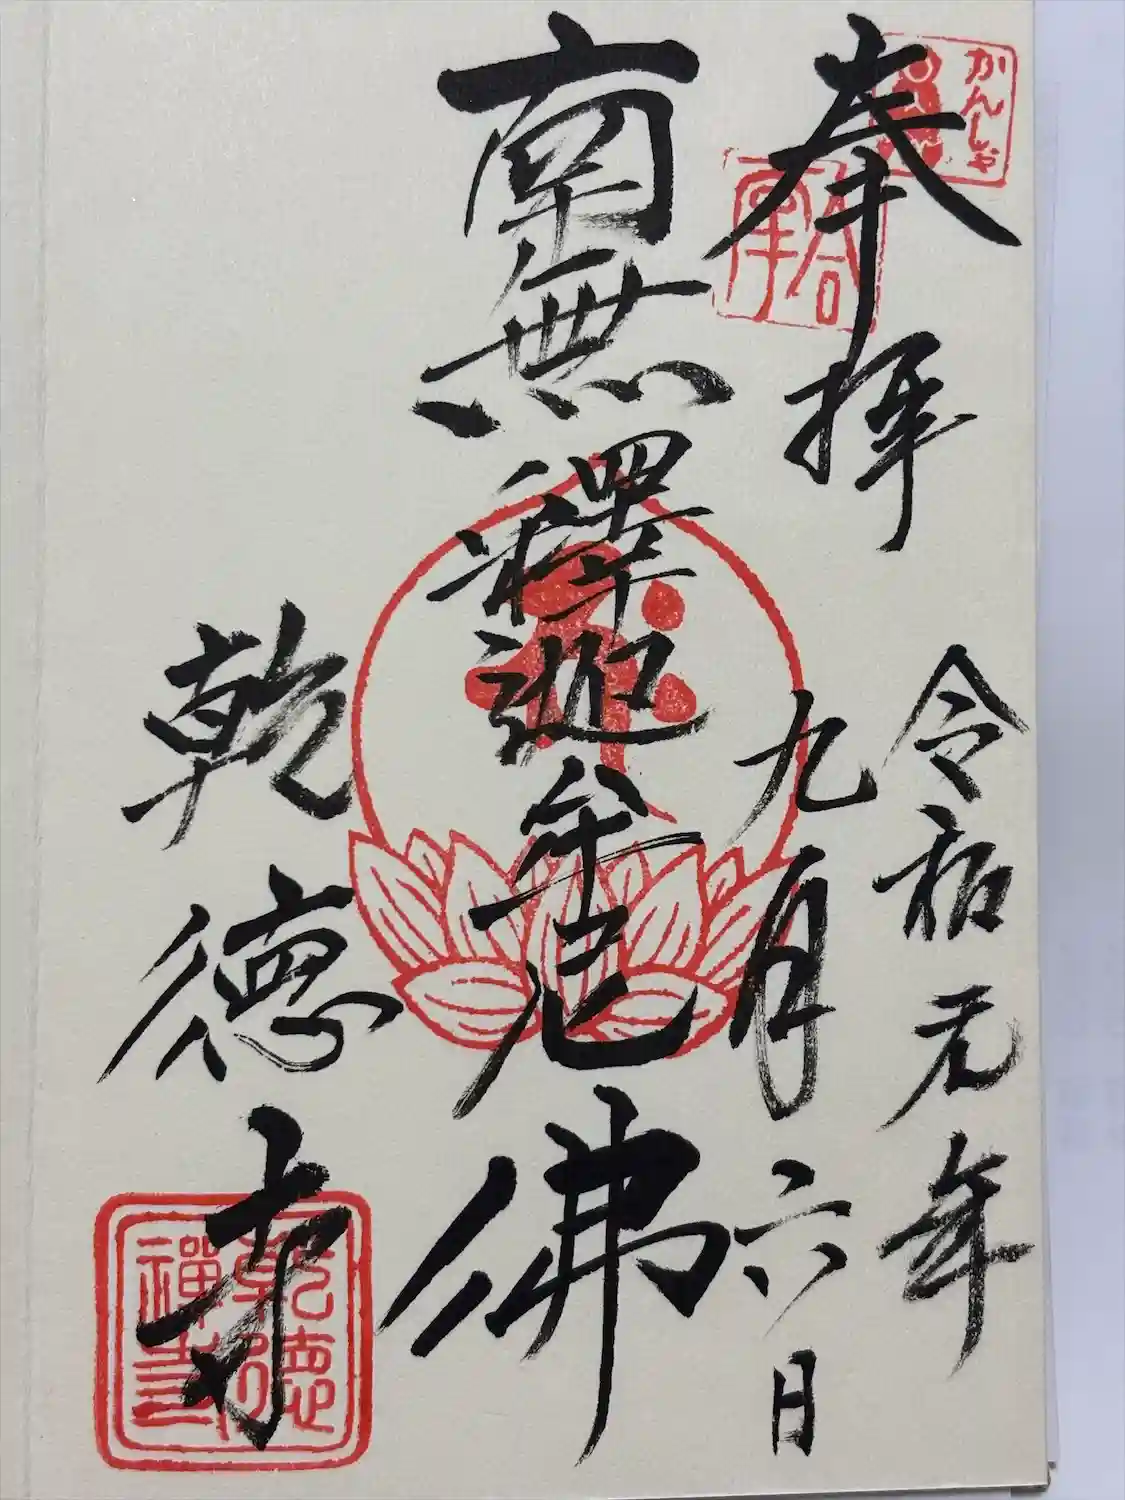 奉拝
かんしゃ
合掌
令和元年
九月六日
南無釋迦牟尼佛
乾德寺
乾徳
禅寺